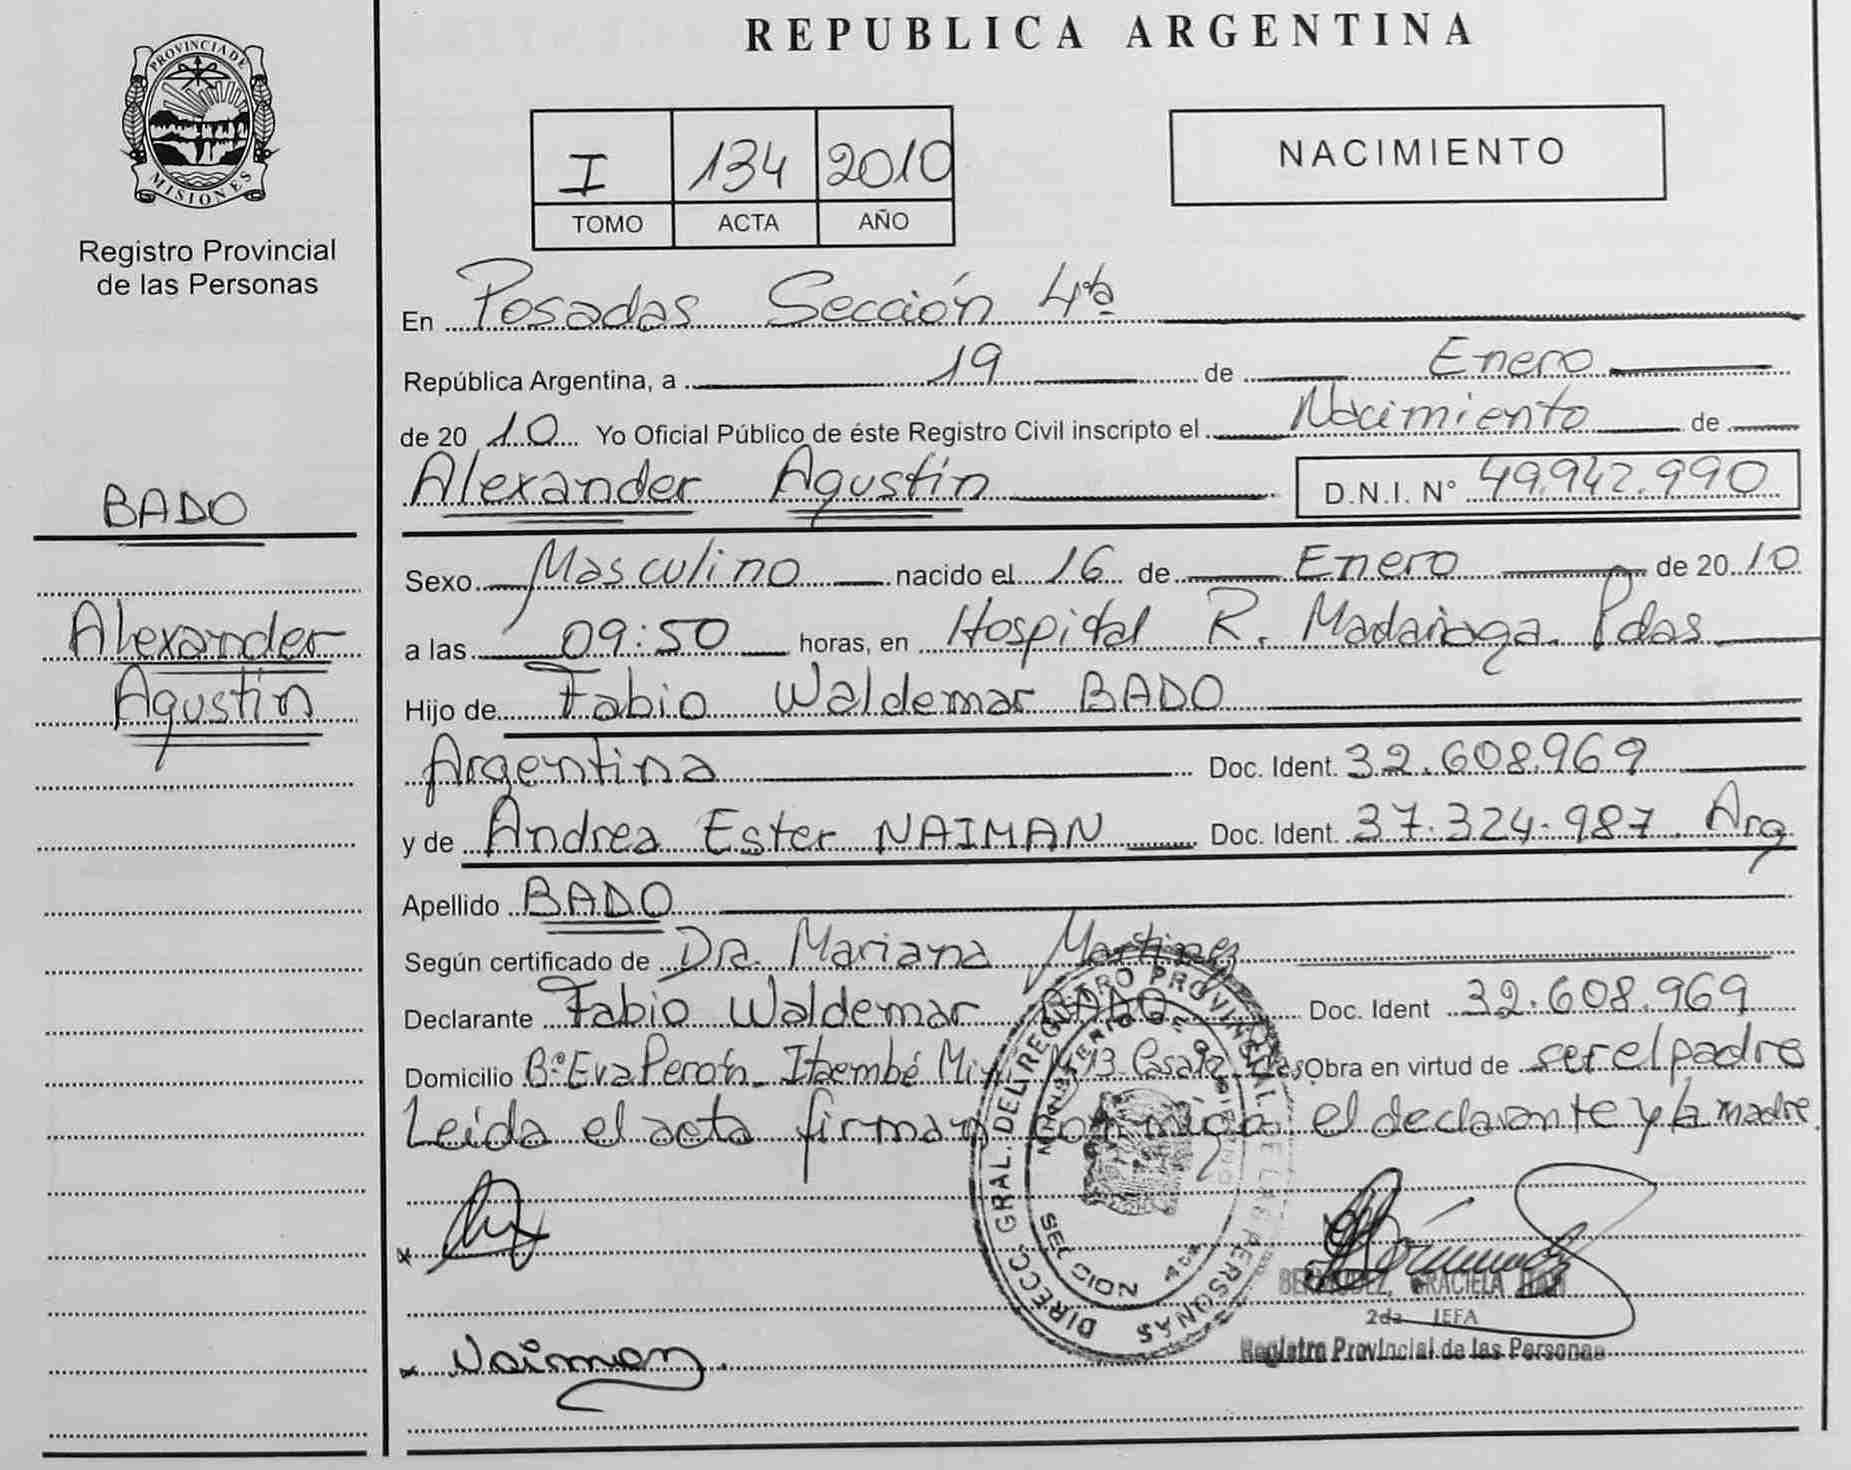 REPUBLICA ARGENTINA
PROVINCIA DE
MISIONES
Registro Provincial
de las Personas
I 134 2010
TOMO ACTA AÑO
NACIMIENTO
En Posadas Sección 4ta
República Argentina, a 19 de Enero
de 20 10 Yo Oficial Público de éste Registro Civil inscripto el Nacimiento de
Alexander Agustín D.N.I. N° 49.942.990
BADO
Alexander
Agustín
Sexo Masculino nacido el 16 de Enero de 20 10
a las 09:50 horas, en Hospital R. Madariaga. Pdas
Hijo de Fabio Waldemar BADO
Argentina Doc. Ident. 32.608.969
y de Andrea Ester NAIMAN Doc. Ident. 37.324.987. Arg
Apellido BADO
Según certificado de Dra. Mariana Martinez
Declarante Fabio Waldemar BADO Doc. Ident 32.608.969
Domicilio B° Eva Perón - Itaembé Obra en virtud de ser el padre
Leída el acta firman conmigo el declarante y la madre.
DIRECC. GRAL. DEL REGISTRO PROVINCIAL DE LAS PERSONAS
MINISTERIO DE GOBIERNO
SECCION 4ta
BERMUDEZ, GRACIELA
2da JEFA
Registro Provincial de las Personas
x Naiman.